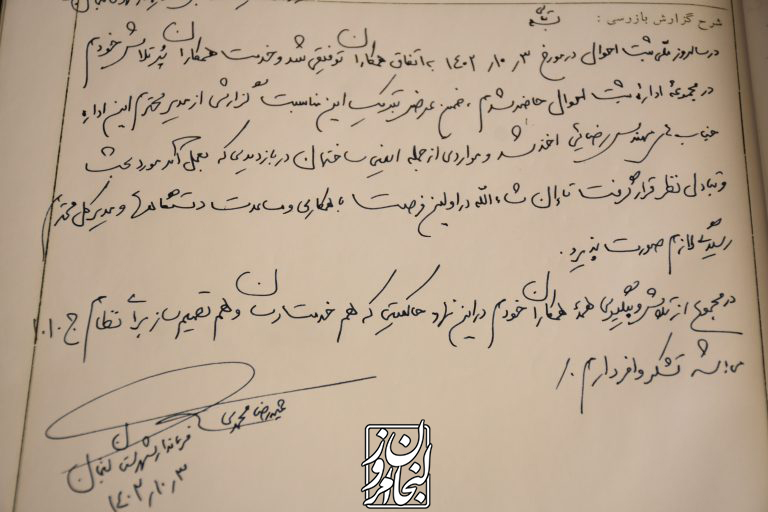 شرح گزارش بازرسی :
در سالروز ملی ثبت احوال در مورخ ۱۴۰۲/۱۰/۳ به اتفاق همکاران توفیقی شد و خدمت همکاران پرتلاش خودم
در مجموعهٔ ادارهٔ ثبت احوال حاضر شدم ، ضمن عرض تبریک این مناسبت گزارشی از مدیر محترم این اداره
جناب مهندس رضائی اخذ شد و مواردی از جمله ایمنی ساختمان در بازدیدی که بعمل آمد مورد بحث
و تبادل نظر قرار گرفت تا إن شاءالله در اولین فرصت با همکاری و مساعدت دستگاهها و مدیر کل محترم
رسیدگی لازم صورت پذیرد .
در مجموع از تلاش و پیگیری همهٔ همکاران خودم در این نهاد حاکمیتی که هم خدمت رسان و هم تصمیم ساز برای نظام ج.ا.ا
می باشد تشکر وافر دارم ./
حمیدرضا محمدی
فرماندار شهرستان لنجان
۱۴۰۲/۱۰/۳
لنجان امروز